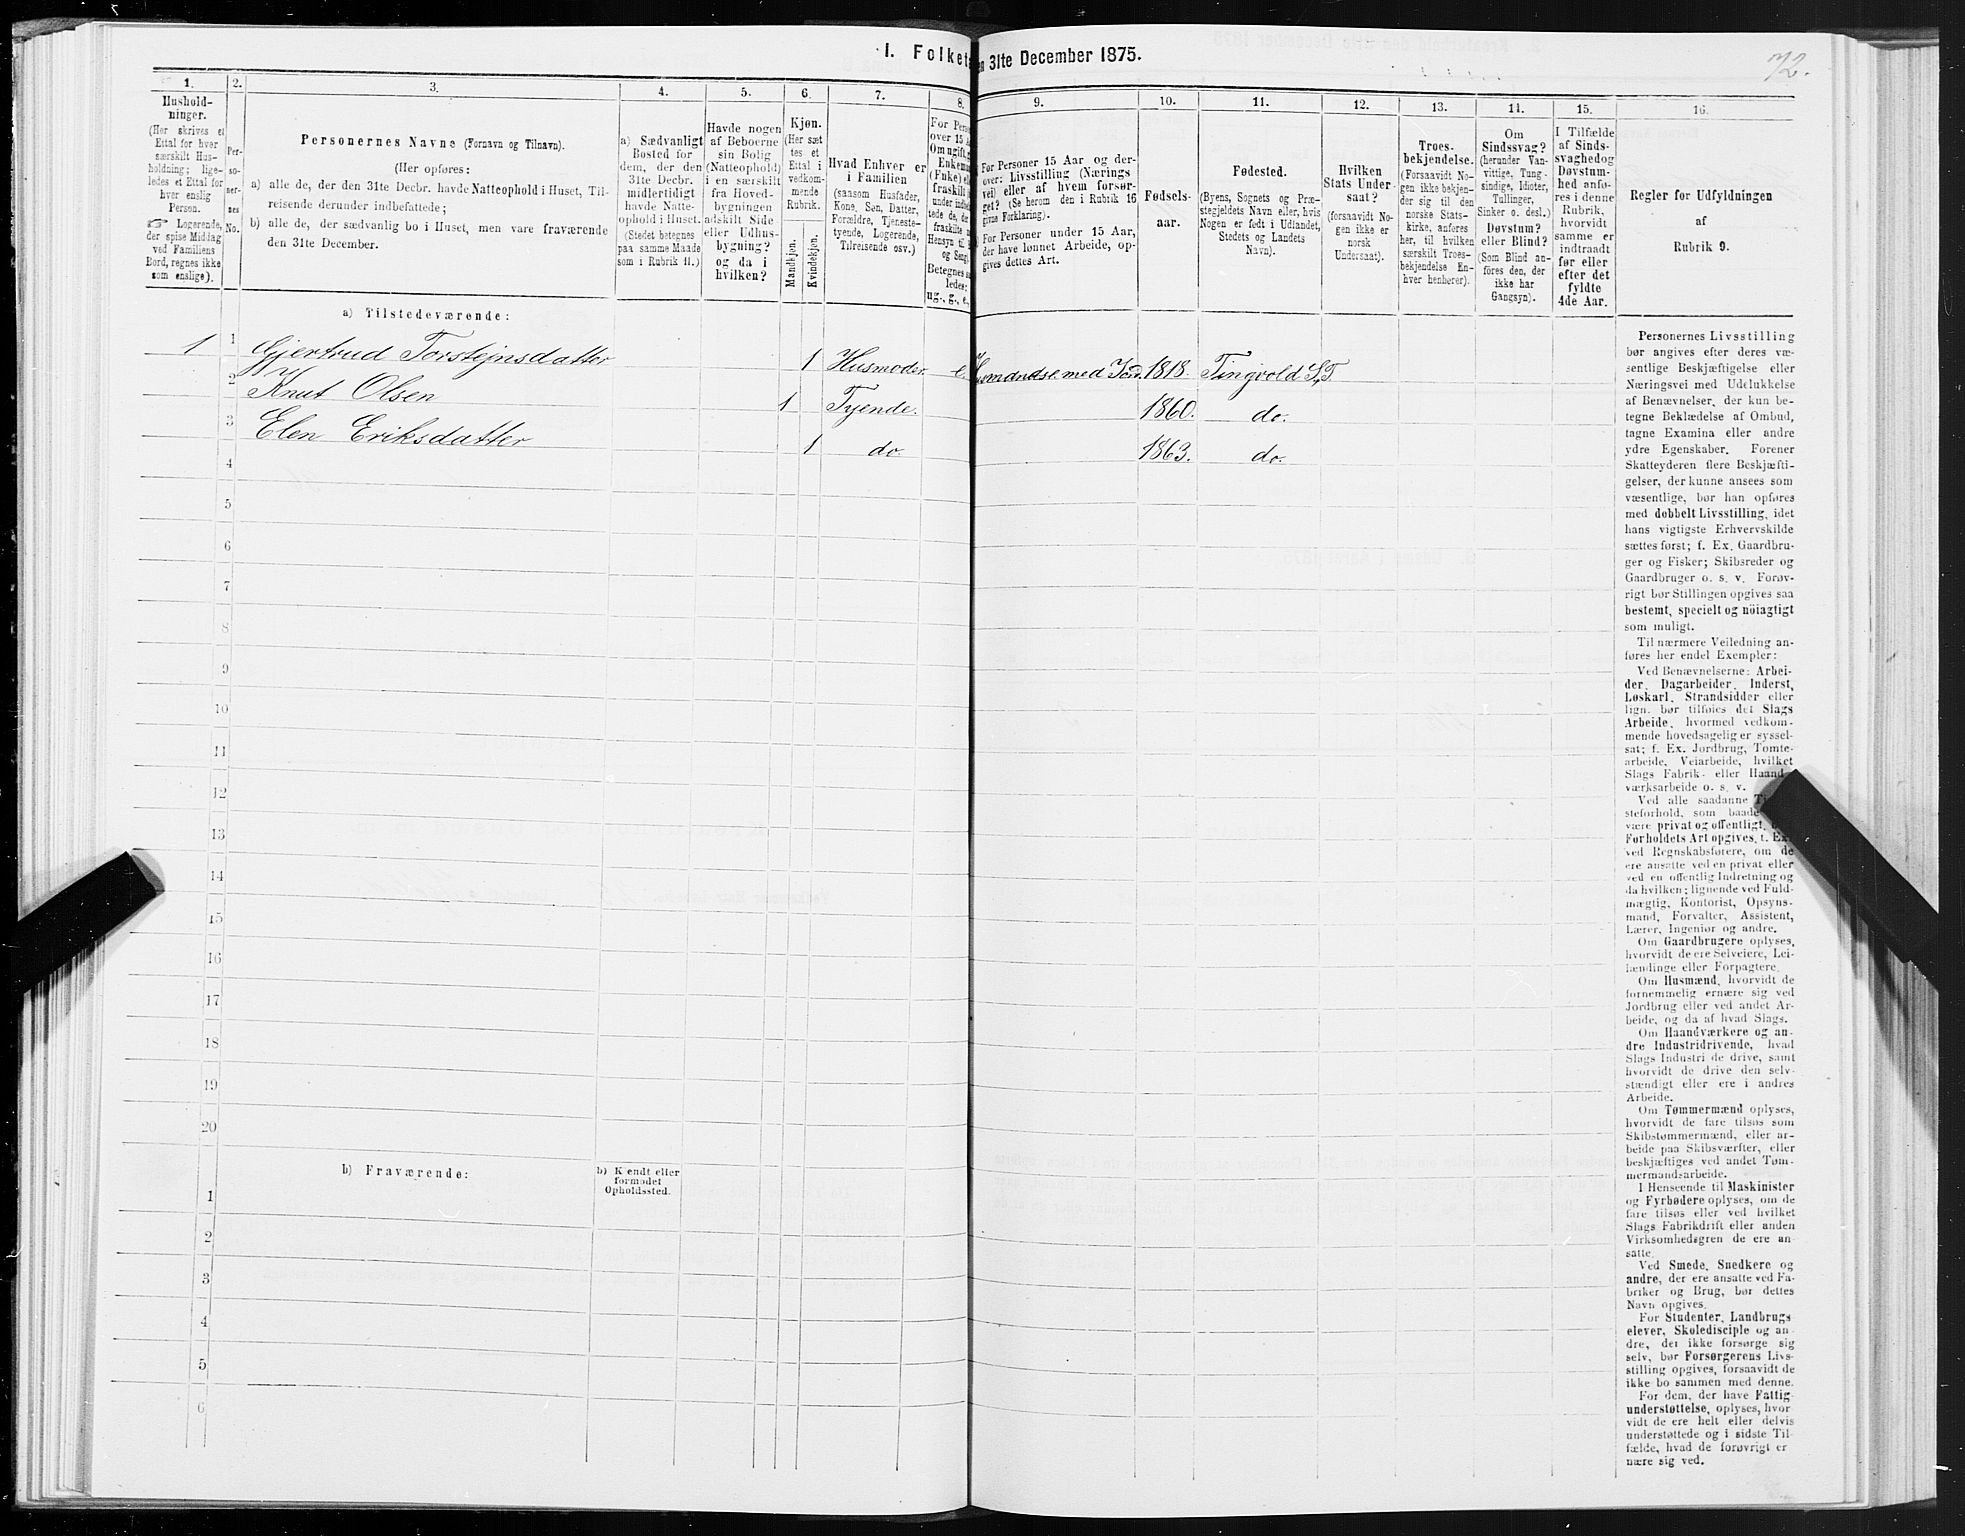 I. Folket
en 31te December 1875.
72.
1.
2.
3.
4.
5.
6.
7.
8.
9.
10.
11.
12.
13.
14.
15.
16.
Hushold-
ninger.
(Her skrives et
Ettal for hver
særskilt Hus-
holdning; lige-
ledes et Ettal for
hver enslig
Person.
☞ Logerende,
der spise Middag
ved Familiens
Bord, regnes ikke
som enslige).
Per-
so-
ner-
nes
No.
Personernes Navne (Fornavn og Tilnavn).
(Her opføres:
a) alle de, der den 31te Decbr. havde Natteophold i Huset, Til-
reisende derunder indbefattede;
b) alle de, der sædvanlig bo i Huset, men vare fraværende
den 31te December.
a) Sædvanligt
Bosted for
dem, der den
31te Decbr.
midlertidigt
havde Natte-
ophold i Huset.
(Stedet betegnes
paa samme Maade
som i Rubrik 11.)
Havde nogen
af Beboerne
sin Bolig
(Natteophold)
i en særskilt
fra Hoved-
bygningen
adskilt Side-
eller Udhus-
bygning?
og da i
hvilken?
Kjøn.
(Her sæt
tes et
Ettal i
vedkom-
mende
Rubrik.
Mandkjøn.
Kvindekjøn.
Hvad Enhver er
i Familien
(saasom Husfader,
Kone, Søn, Datter,
Forældre, Tjeneste-
tyende, Logerende,
Tilreisende osv.)
For Perso
over 15 A
Om ugift, g
Enkema
(Enke) el
fraskilt
under indbe
tede de, de
fraskilte
Hensyn til
og Seng.
Betegnes s
ledes:
ug., g., e.,
For Personer 15 Aar og der-
over: Livsstilling (Nærings
vei) eller af hvem forsør-
get? (Se herom den i Rubrik 16
givne Forklaring).
For Personer under 15 Aar,
der have lønnet Arbeide, op-
gives dettes Art.
Fødsels-
aar.
Fødested.
(Byens, Sognets og Præ-
stegjeldets Navn eller, hvis
Nogen er født i Udlandet,
Stedets og Landets
Navn).
Hvilken
Stats Under-
saat?
(forsaavidt No-
gen ikke er
norsk
Undersaat).
Troes-
bekjendelse.
(Forsaavidt No-
gen ikke bekjen-
der sig til den
norske Stats-
kirke, anføres
her, til hvilken
særskilt Troes-
bekjendelse En-
hver henhører).
Om
Sindssvag?
(herunder Van-
vittige, Tung-
sindige, Idioter,
Tullinger,
Sinker o. desl.)
Døvstum?
eller Blind?
(Som Blind an-
føres den, der
ikke har
Gangsyn).
I Tilfælde
af Sinds-
svaghedog
Døvstum-
hed anfø-
res i denne
Rubrik,
hvorvidt
samme er
indtraadt
før eller
efter det
fyldte
4de Aar.
Regler for Udfyldningen
af
Rubrik 9.
a) Tilstedeværende:
1 1 Gjertrud Torstejnsdatter 1 Husmoder e. Husmandse. med Jord. 1818. Tingvold S,T.
2 Knut Olsen 1 Tyende. 1860. do.
3 Elen Eriksdatter 1 do 1863. do.
4
5
6
7
8
9
10
11
12
13
14
15
16
17
18
19
20
b) Fraværende:
b) Kjendt eller
formodet
Opholdssted.
1
2
3
4
5
6
Personernes Livsstilling
bør angives efter deres væ-
sentlige Beskjæftigelse eller
Næringsvei med Udelukkelse
af Benævnelser, der kun be-
tegne Beklædelse af Ombud,
tagne Examina eller andre
ydre Egenskaber. Forener
Skatteyderen flere Beskjæfti-
gelser, der kunne ansees som
væsentlige, bør han opføres
med dobbelt Livsstilling, idet
hans vigtigste Erhvervskilde
sættes først; f. Ex. Gaardbru-
ger og Fisker; Skibsreder og
Gaardbruger o. s. v. Forøv-
rigt bør Stillingen opgives saa
bestemt, specielt og nöiagtigt
som muligt.
Til nærmere Veiledning an-
føres her endel Exempler:
Ved Benævnelserne: Arbei-
der, Dagarbeider, Inderst,
Løskarl, Strandsidder eller
lign. bør tilføies det Slags
Arbeide, hvormed vedkom-
mende hovedsagelig er syssel-
sat; f. Ex. Jordbrug, Tomte-
arbeide, Veiarbeide, hvilket
Slags Fabrik- eller Haand-
værksarbeide o. s. v.
Ved alle saadanne
steforhold, som baade
være privat og offentligt,
Forholdets Art opgives, f. Ex.
ved Regnskabsførere, om de
ere ansatte ved en privat eller
ved en offentlig Indretning og
da hvilken; lignende ved Fuld-
mægtig, Kontorist, Opsyns-
mand, Forvalter, Assistent,
Lærer, Ingeniør og andre.
Om Gaardbrugere oplyses,
hvorvidt de ere Selveiere, Lei-
lændinge eller Forpagtere.
Om Husmænd, hvorvidt de
fornemmelig ernære sig ved
Jordbrug eller ved andet Ar-
beide, og da af hvad Slags.
Om Haandværkere og an-
dre Industridrivende, hvad
Slags Industri de drive, samt
hvorvidt de drive den selv-
stændigt eller ere i andres
Arbeide.
Om Tømmermænd oplyses,
hvorvidt de fare tilsøs som
Skibstømmermænd, eller ar-
beide paa Skibsværfter, eller
beskjæftiges ved andet Tøm-
mermandsarbeide.
I Henseende til Maskinister
og Fyrbødere oplyses, om de
fare tilsøs eller ved hvilket
Slags Fabrikdrift eller anden
Virksomhedsgren de ere an-
satte.
Ved Smede, Snedkere og
andre, der ere ansatte ved Fa-
briker og Brug, bør dettes
Navn opgives.
For Studenter, Landbrugs-
elever, Skoledisciple og an-
dre, der ikke forsørge sig
selv, bør Forsørgerens Livs-
stilling opgives, forsaavidt de
ikke bo sammen med denne.
For dem, der have Fattig-
understøttelse, oplyses, hvor-
vidt de ere helt eller delvis
understøttede og i sidste Til-
fælde, hvad de forøvrigt er-
nære sig ved.